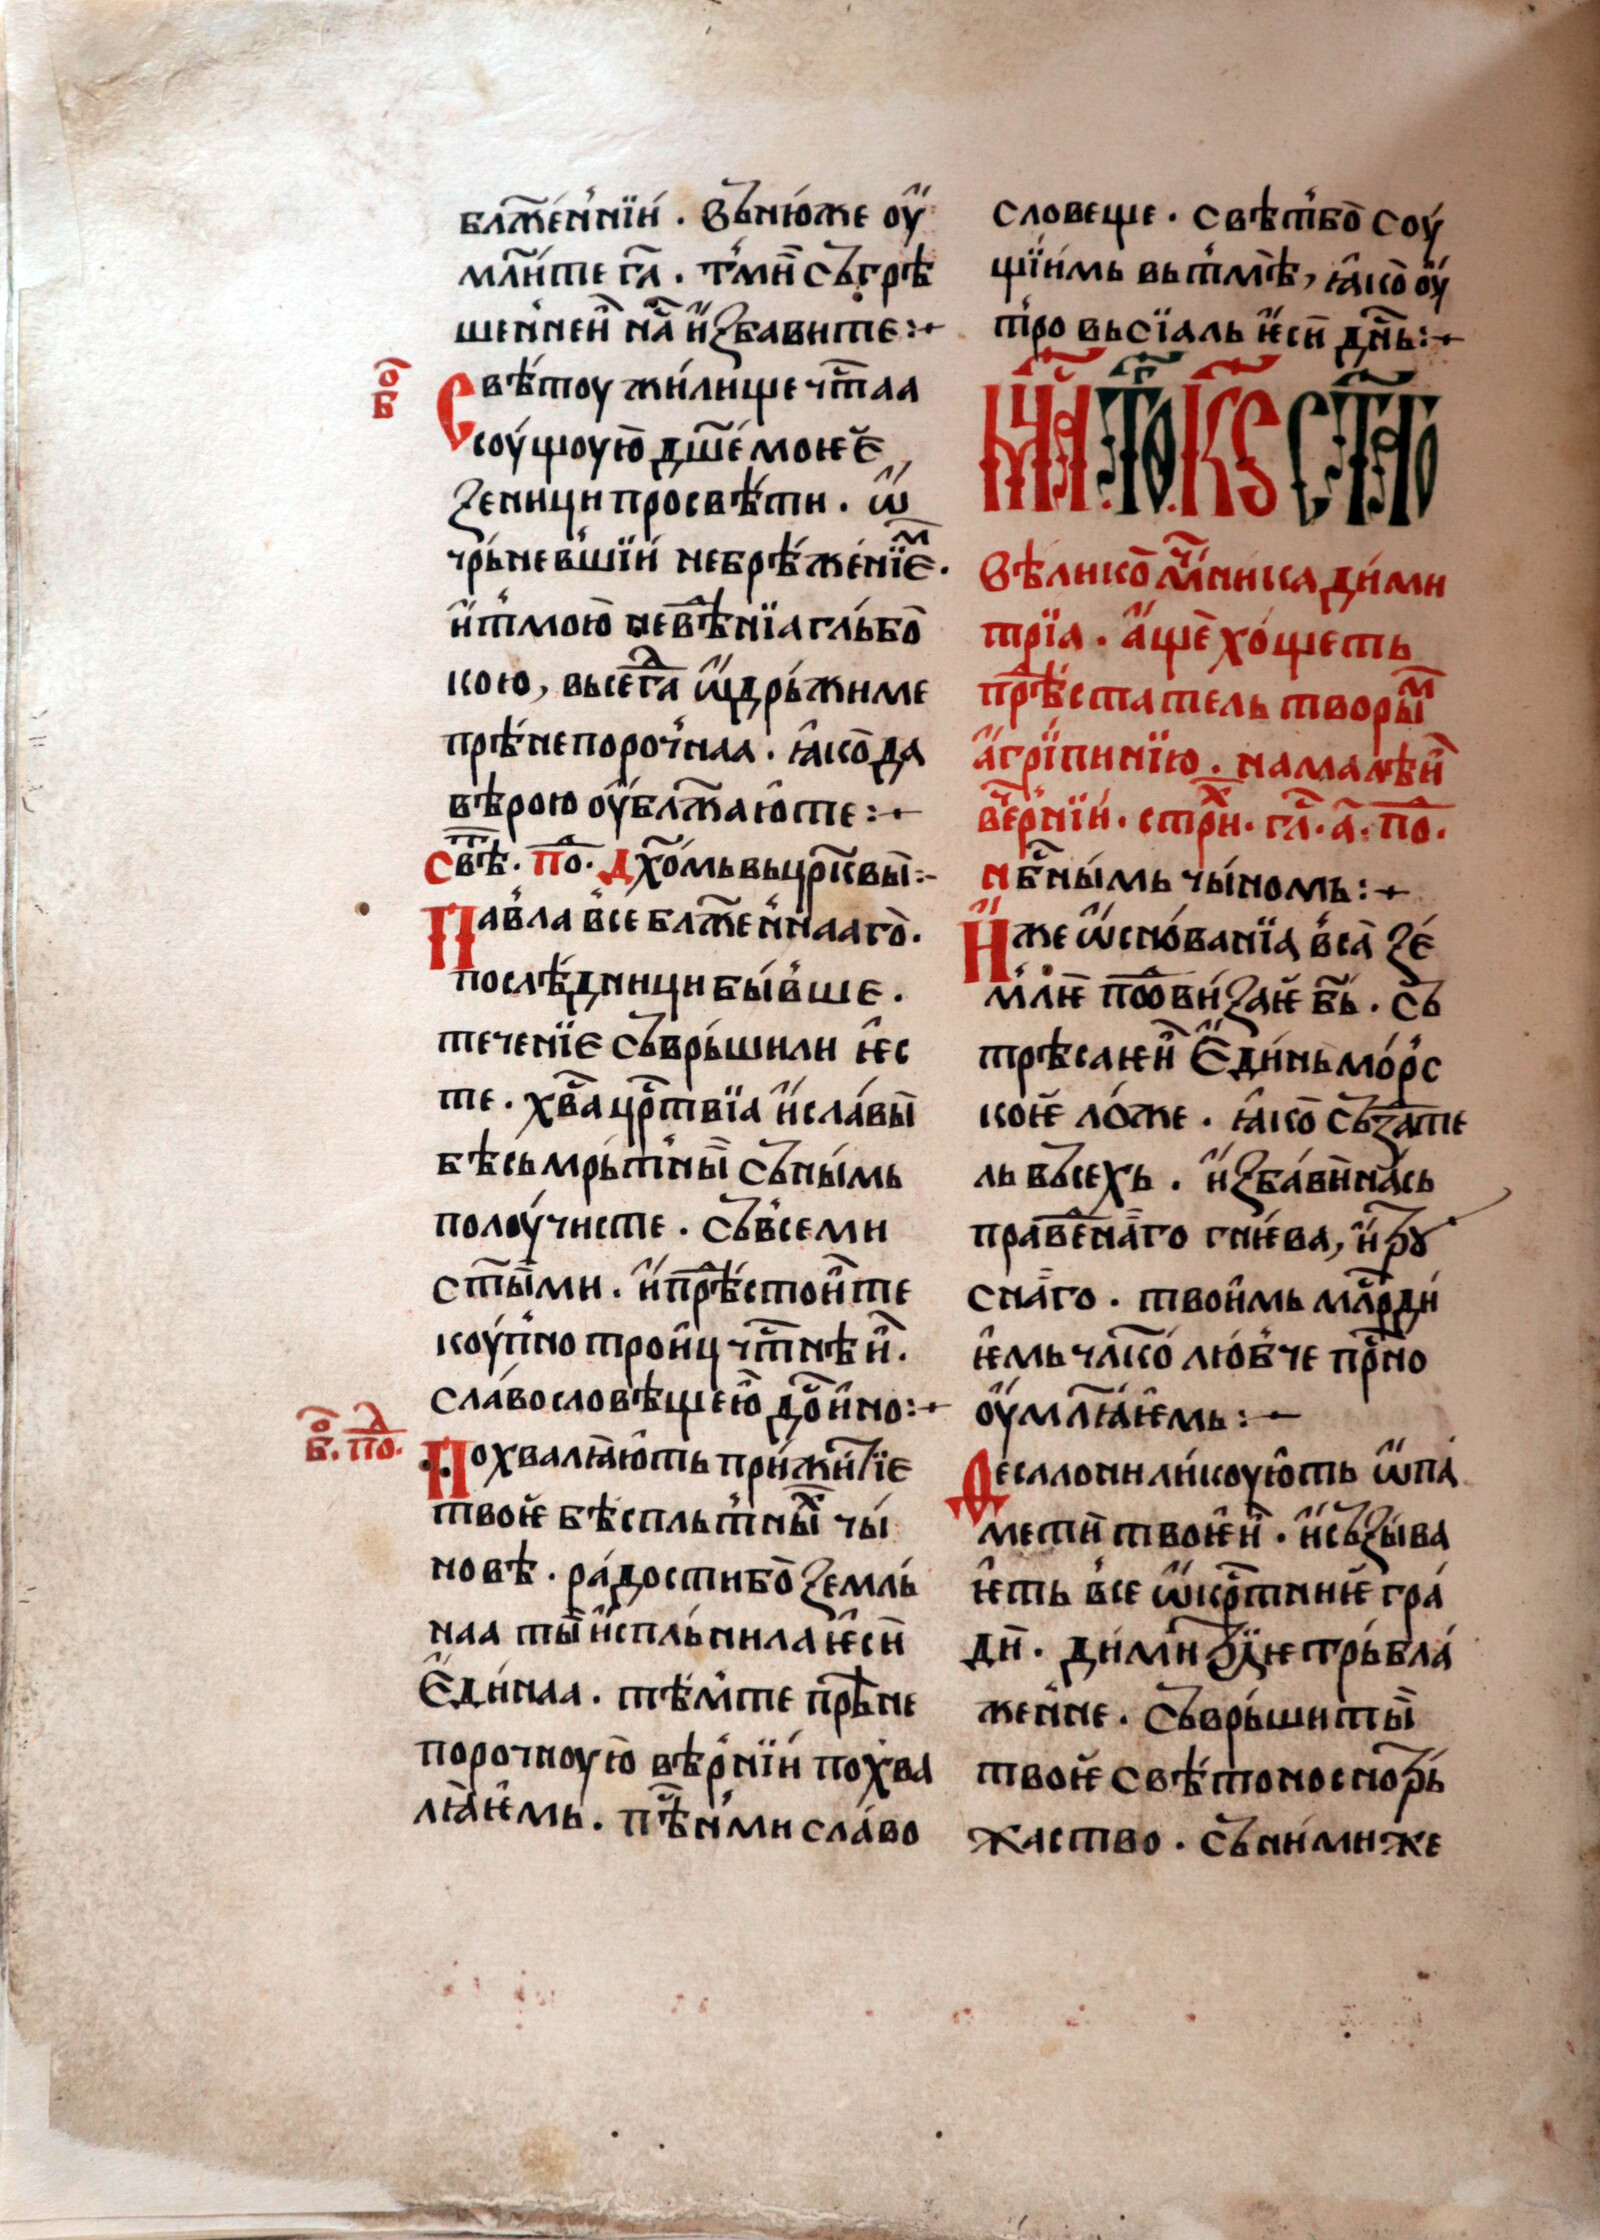 бл҃же́н̾нїи . въню́же оу҆
мл҃и́те гл҃ . т̾мн̀ съгрѣ
шен̾неи҆ на҄ и҆збавите :~
о҄ б҃
Свѣ́тоу жи́лище ч҃таа
соу́щоую̀ дш҃е́ мокѥ̀
зеници просвѣ́ти . ѿ
чрь́невшїи небрѣже́нїемⷨ .
и҆ т̾мою̀ невѣ́нїа глъ́бо
кою , высегⷣа ѡ҆дрь́жиме
прѣ́непороч̾наа . ꙗ҆ко̀ да
вѣ́рою оу҆бл҃жаю҆те :~
Свѣⷮ . поⷣ . Дх҃о́мь вь цр҃квы̀ :~
Пав̾ла в̾се бл҃жен̾наго .
послѣ́дници бы́в̾ше .
течение съврь́шили ѥ҆с
те . хв҃а цр҃твїа и҆ сла́вы̀
бѣсьмрь́т̾ны̀ съны́мь
полоу́чисте . съв̾се́ми
ст҃ы́ми . и҆ прⷣѣ́стои҆те
коу́п̾но трои҆ц чⷭ҇тнѣи҆ .
сла́вословѣщею̀ дⷭ҇ои҆но :~
о҄ б҃ . поⷣ .
Похвалꙗю҆ть при́ жи́тїе
твоѥ̀ бѣспль́т̾ныⷯ чы́
новѣ . ра́дости бо̀ земль́
наа ты̀ и҆спль́нила ѥ҆сѝ
Е҆ди́наа . тѣ́м̾те прⷣѣ́не
порочноую̀ вѣ́р̾нїи пох̾ва
лꙗ҆ѥмь . пⷭ҇ѣ́н̾ми сла́во
словеще . свѣ́т̾бо̀ соу́
щїи́мь вь т̾м̀ѣ , ꙗ҆ко̀ оу҆
т̾ро вьсїаль ѥ҆сѝ дн҃ь :~
МЦⷭ҇А . ТО . К҃Ѕ СТ҃ГО
Вѣлико̀ мⷱ҇ни́ка ди́ми
трїа . а҆щѐ хо́щеть
прⷣѣ́статель творыⷨ
а҆грїпинїю . на малѣи҆
веⷱ҇р̾нїи . стрⷯи . глⷭ҇ . а҃ . поⷣ .
Нбⷭ҇ны́мь чы́номь :~
И҆же ѡ҆сно́ванїа в̾са̀ зе́
м̾лѥ̀ поⷣови́заѥ̀ бы̀ . съ
трѣсаѥи҆ Е҆ди́нь мо́р̾с
коѥ̀ ло́же . ꙗ҆ко̀ съзⷣа́те
ль въсехь . и҆зба́вина́сь
правеⷣна́го гнѥ́ва , и҆ трⷹ
сна́го . твои҆мь млⷭ҇рди
ѥ҆мь чл҃ко́лю́б̾че прⷭ҇но
оу҆мл҃ꙗ҆ѥмь :~
Десалонили́коую҆ть ѡ҆па́
мети твоѥ҆и҆ . и҆съзы́ва
ѥ҆ть в̾се ѡ҆крⷭ҇тниѥ̀ гра́
дѝ . ди́митрїѥ трь́бла́
жен̾не . съврь́ши ты̀
твоѥ̀ свѣ́тоносно тръ́
жаство . съни́ми же